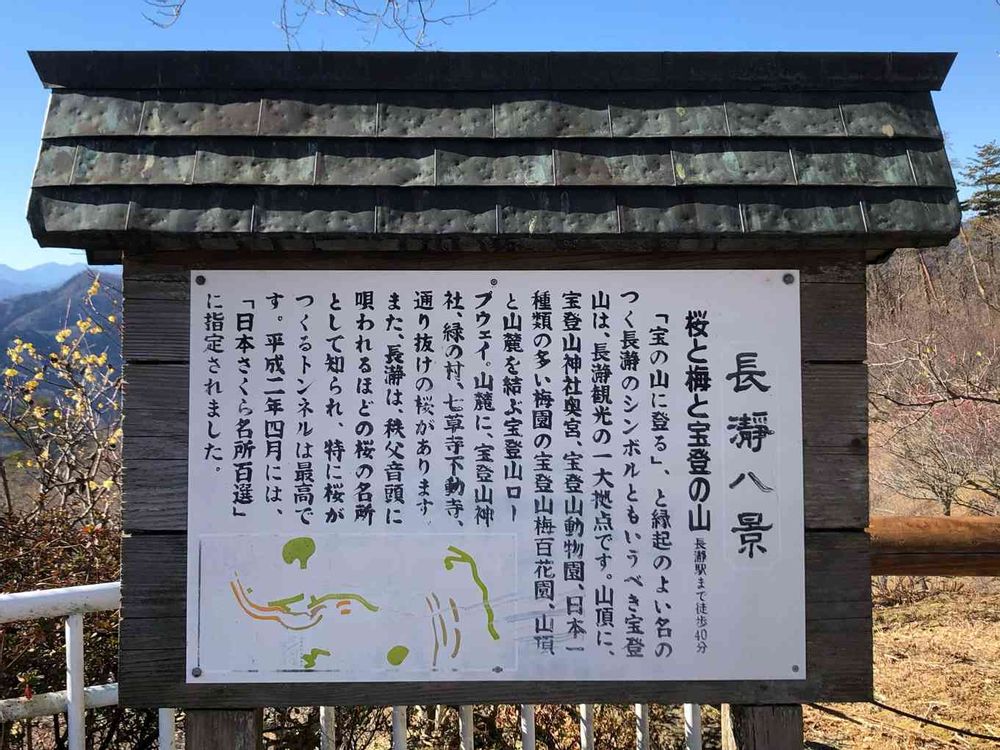 長瀞八景
桜と梅と宝登の山 長瀞駅まで徒歩40分
「宝の山に登る」、と縁起のよい名の
つく長瀞のシンボルともいうべき宝登
山は、長瀞観光の一大拠点です。山頂に、
宝登山神社奥宮、宝登山動物園、日本一
種類の多い梅園の宝登山梅百花園、山頂
と山麓を結ぶ宝登山ロー
プウェイ。山麓に、宝登山神
社、緑の村、七草寺不動寺、
通り抜けの桜があります。
また、長瀞は、秩父音頭に
唄われるほどの桜の名所
として知られ、特に桜が
つくるトンネルは最高で
す。平成二年四月には、
「日本さくら名所百選」
に指定されました。